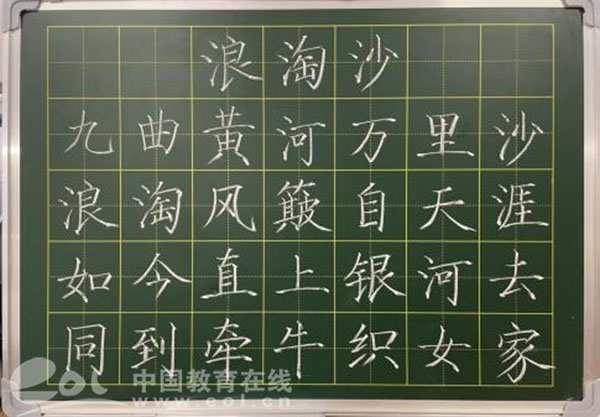 浪淘沙
九曲黄河万里沙
浪淘风簸自天涯
如今直上银河去
同到牵牛织女家
eol 中国教育在线
www.eol.cn